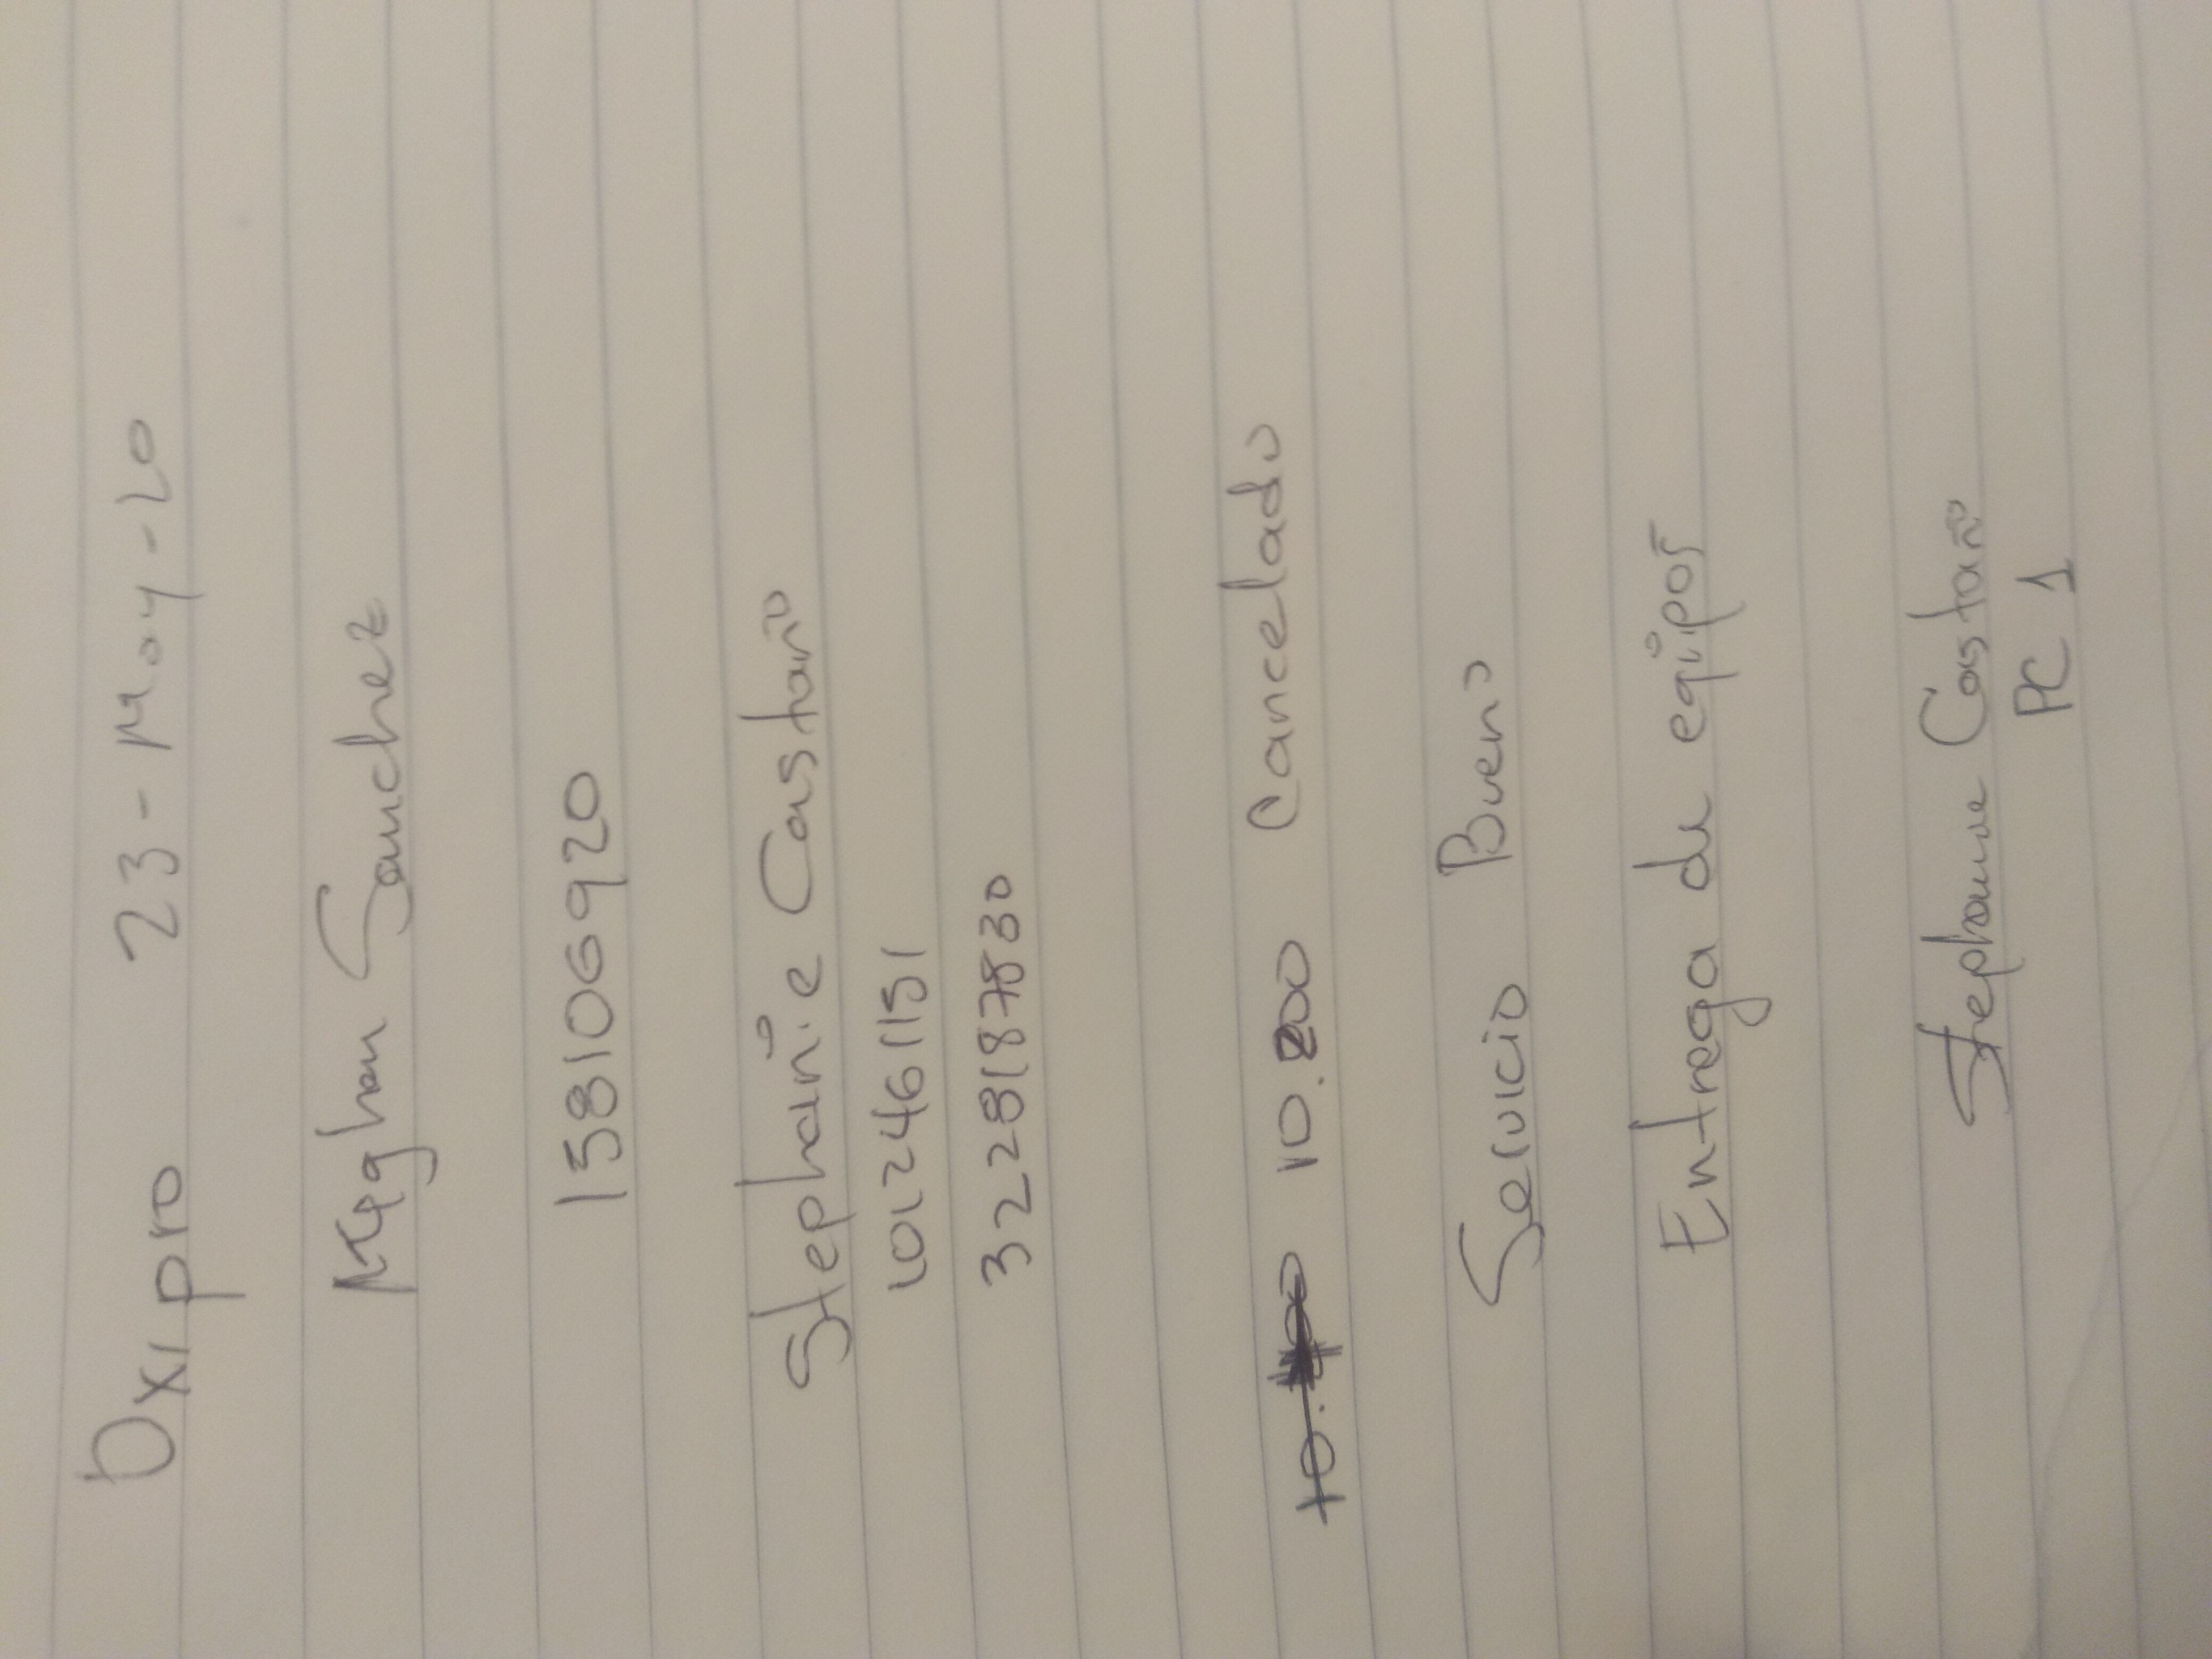 Oxipro 23-May-20
Meghan Sanchez
158106920
Stephanie Castaño
1012461151
3228187830
10.200 Cancelado
Servicio Bueno
Entrega de eqipos
Stephanie Castaño
PC 1